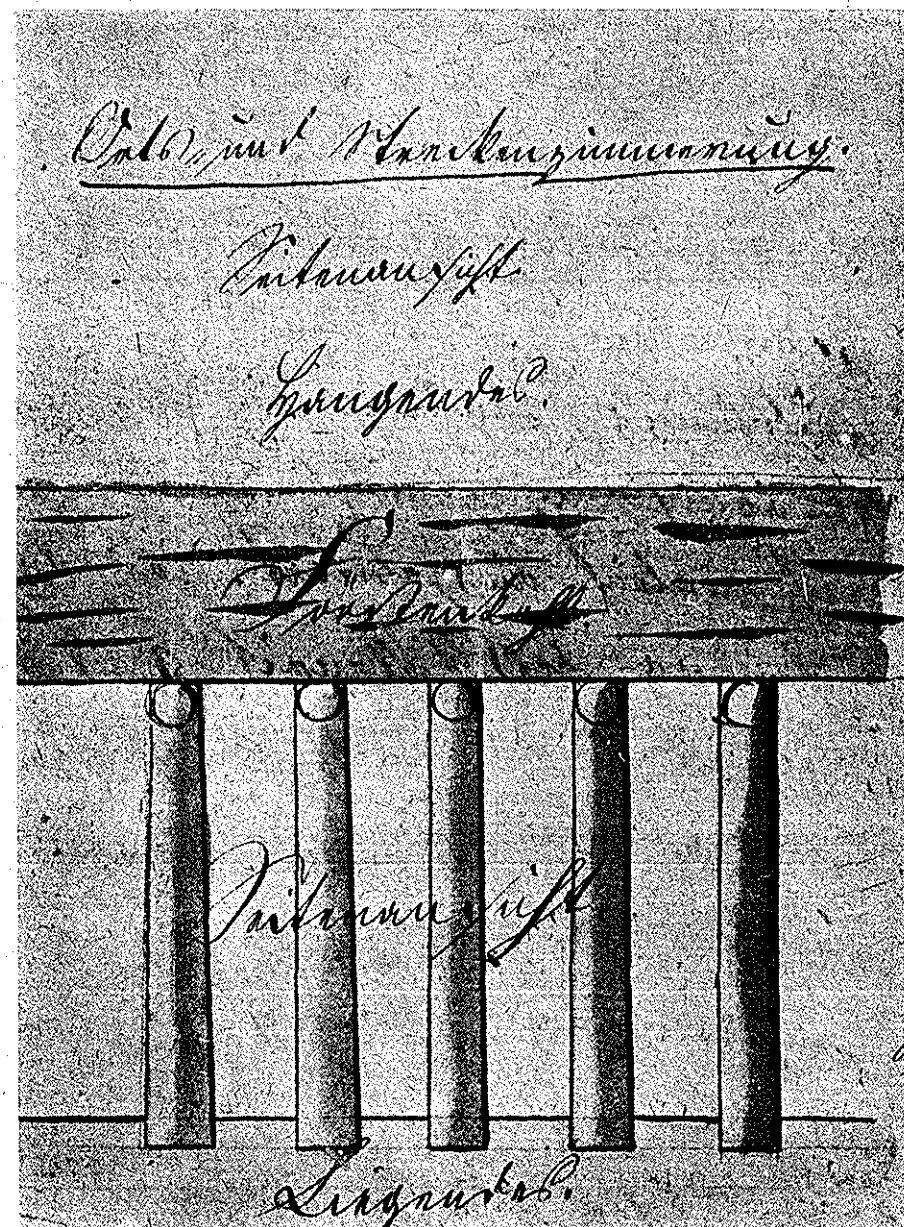 Orts- und Streckenzimmerung.
Seitenansicht
Hangendes.
Seitenansicht
Liegendes.